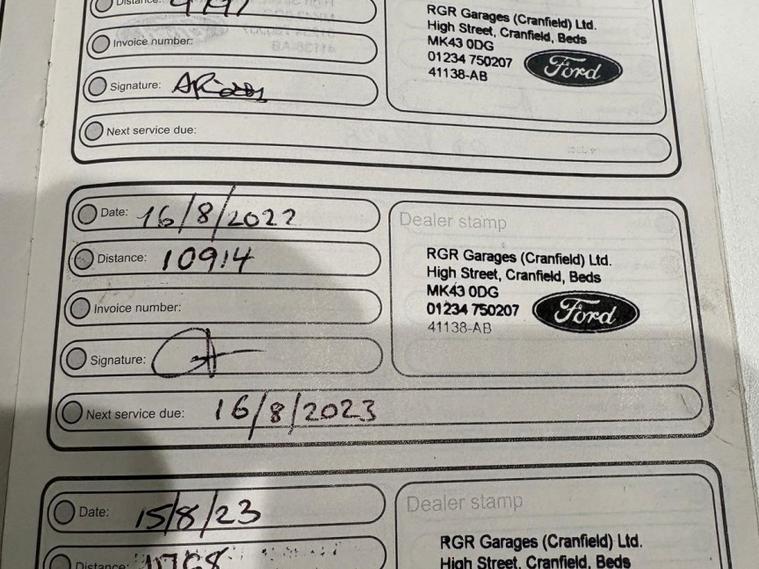 Distance:
RGR Garages (Cranfield) Ltd.
High Street, Cranfield, Beds
MK43 0DG
01234 750207
41138-AB
Ford
Invoice number:
Signature:
Next service due:
Date: 16/8/2022
Dealer stamp
Distance: 10914
RGR Garages (Cranfield) Ltd.
High Street, Cranfield, Beds
MK43 0DG
01234 750207
41138-AB
Ford
Invoice number:
Signature:
Next service due: 16/8/2023
Date: 15/8/23
Dealer stamp
RGR Garages (Cranfield) Ltd.
High Street, Cranfield, Beds
Distance: